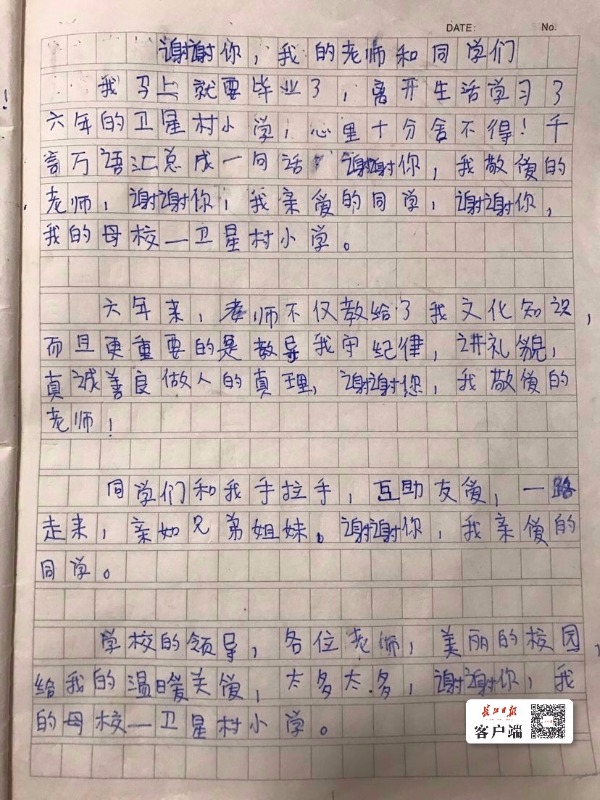 DATE: No.
谢谢你,我的老师和同学们
我马上就要毕业了,离开生活学习了
六年的卫星村小学,心里十分舍不得!千
言万语汇总成一句话 谢谢你,我敬爱的
老师,谢谢你,我亲爱的同学,谢谢你,
我的母校—卫星村小学。
六年来,老师不仅教给了我文化知识,
而且更重要的是教导我守纪律,讲礼貌,
真诚善良做人的真理,谢谢您,我敬爱的
老师!
同学们和我手拉手,互助友爱,一路
走来,亲如兄弟姐妹。谢谢你,我亲爱的
同学。
学校的领导,各位老师,美丽的校园,
给我的温暖关爱,太多太多,谢谢你,我
的母校—卫星村小学。
长江日报
客户端